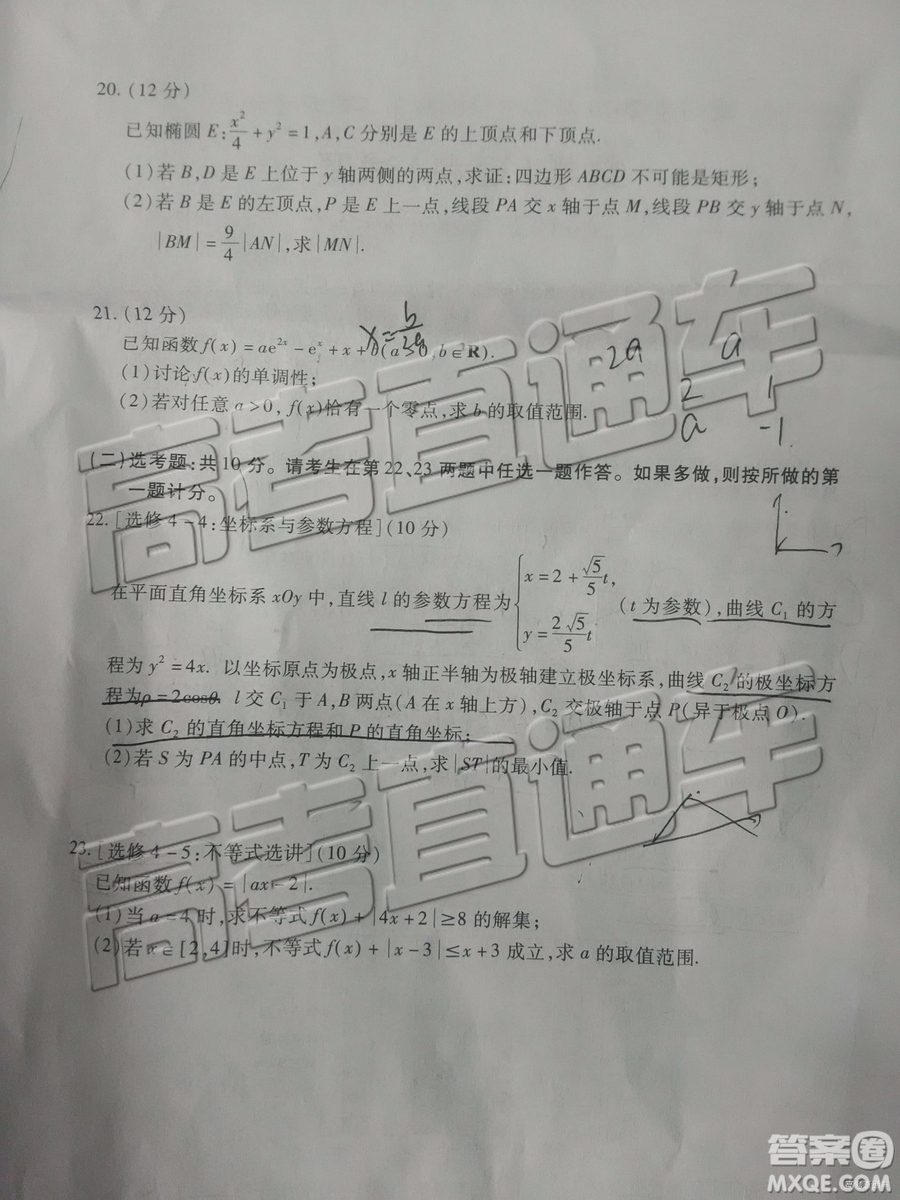 20. (12 分)
已知椭圆 E: x²/4 + y² = 1, A, C 分别是 E 的上顶点和下顶点.
(1) 若 B, D 是 E 上位于 y 轴两侧的两点, 求证: 四边形 ABCD 不可能是矩形;
(2) 若 B 是 E 的左顶点, P 是 E 上一点, 线段 PA 交 x 轴于点 M, 线段 PB 交 y 轴于点 N,
|BM| = 9/4 |AN|, 求 |MN|.
21. (12 分)
x = b/
已知函数 f(x) = ae^{2x} - e^x + x + (a , b ∈ R).
2a a
(1) 讨论 f(x) 的单调性;
2 1
(2) 若对任意 a > 0, f(x) 恰有一个零点, 求 b 的取值范围.
a -1
(二) 选考题: 共 10 分。请考生在第 22、23 两题中任选一题作答。如果多做, 则按所做的第
一题计分。
22. [选修 4-4: 坐标系与参数方程] (10 分)
在平面直角坐标系 xOy 中, 直线 l 的参数方程为 { x = 2 + √5/5 t, y = 2√5/5 t (t 为参数), 曲线 C₁ 的方
程为 y² = 4x. 以坐标原点为极点, x 轴正半轴为极轴建立极坐标系, 曲线 C₂ 的极坐标方
程为 ρ = 2cosθ. l 交 C₁ 于 A, B 两点 (A 在 x 轴上方), C₂ 交极轴于点 P (异于极点 O).
(1) 求 C₂ 的直角坐标方程和 P 的直角坐标;
(2) 若 S 为 PA 的中点, T 为 C₂ 上一点, 求 |ST| 的最小值.
23. [选修 4-5: 不等式选讲] (10 分)
已知函数 f(x) = |ax - 2|.
(1) 当 a = 4 时, 求不等式 f(x) + |4x + 2| ≥ 8 的解集;
(2) 若 x ∈ [2, 4] 时, 不等式 f(x) + |x - 3| ≤ x + 3 成立, 求 a 的取值范围.
高考直通车
高考直通车
答案圈
MXQE.COM